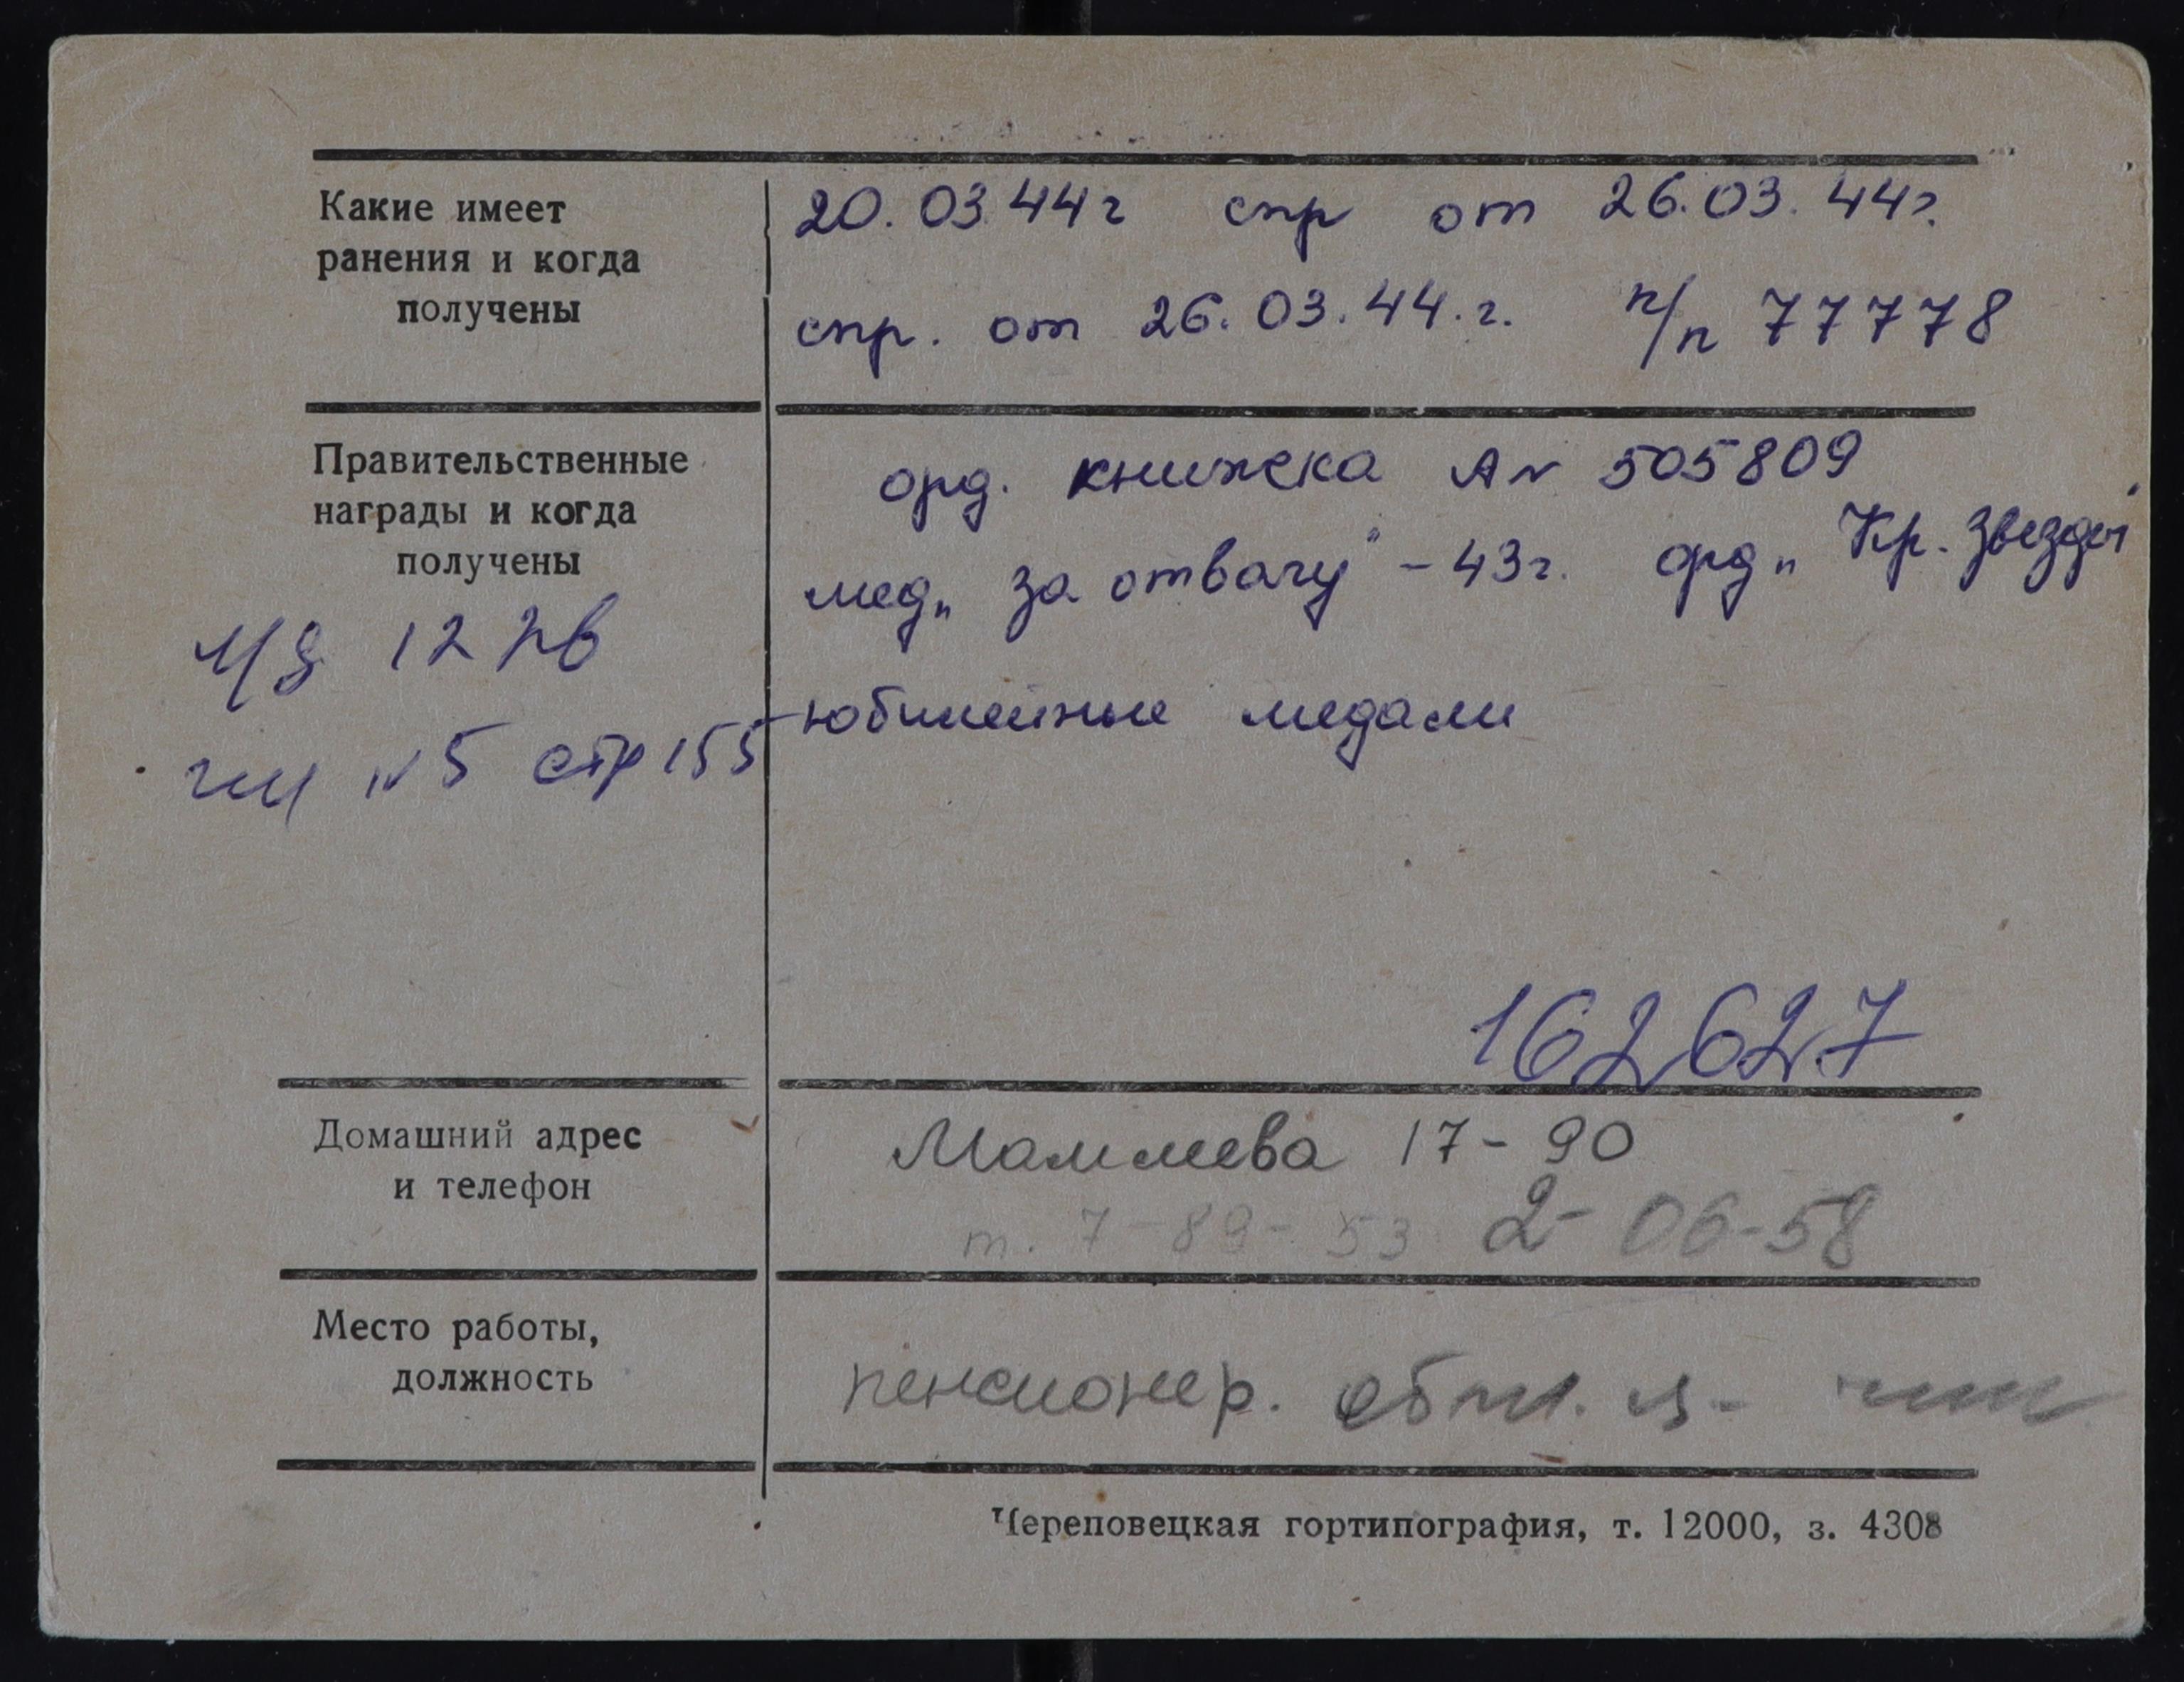 Какие имеет
ранения и когда
получены
20.03.44г спр от 26.03.44г.
спр. от 26.03.44.г. п/п 77778
Правительственные
награды и когда
получены
орд. книжека А№ 505809
мед „За отвагу" - 43г. орд „Кр. Звезды"
юбилейные медали
У/д 12 РВ
№5 стр 155
162627
Домашний адрес
и телефон
Маммева 17-90
т. 7-89-53 2-06-58
Место работы,
должность
пенсионер.
Череповецкая гортипография, т. 12000, з. 4308